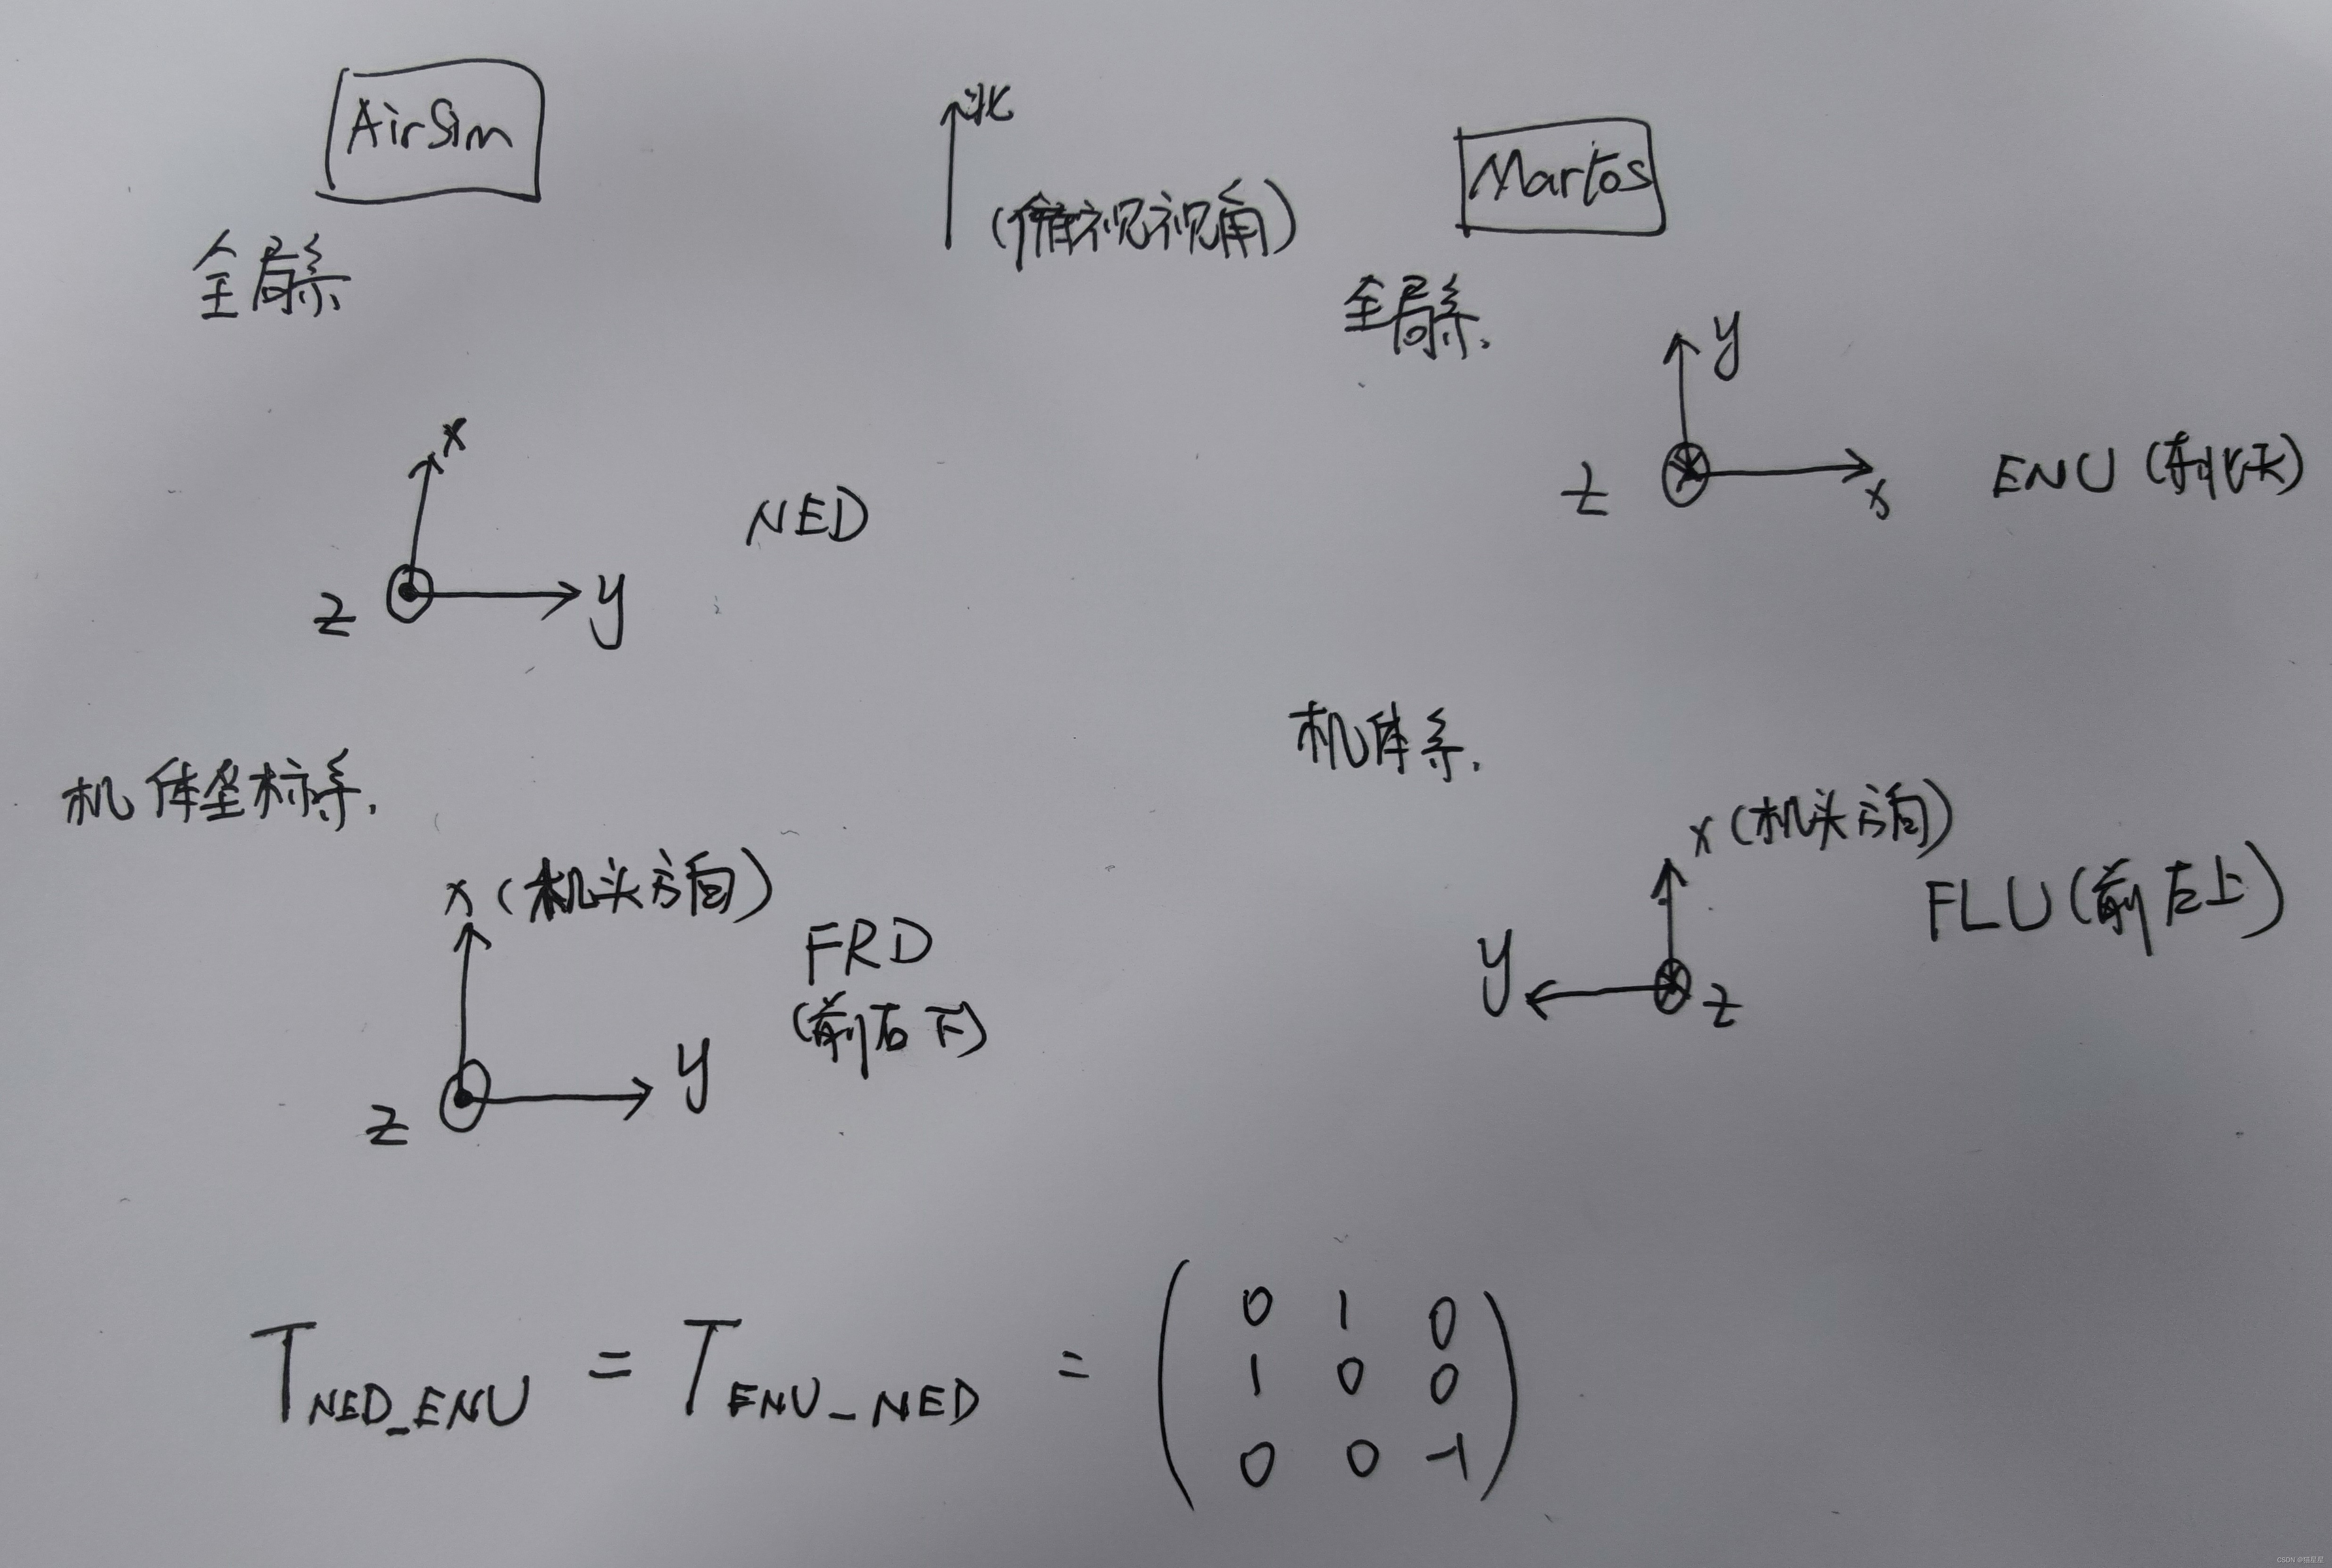 AirSim
北
(俯视视角)
Martos
全局系
全局系.
x
y
z
NED
y
x
z
ENU (东北天)
机体坐标系.
机体系.
x (机头方向)
y
z
FRD
(前右下)
x (机头方向)
y
z
FLU (前左上)
T NED_ENU = T ENU_NED = ( 0 1 0
1 0 0
0 0 -1 )
CSDN @猫星星